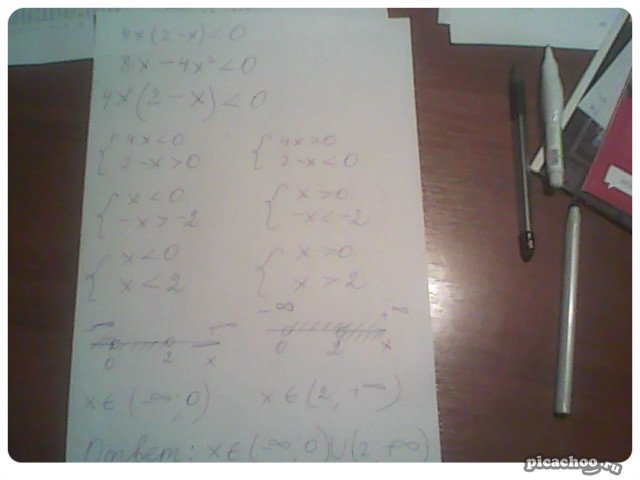 4x(2-x)<0
8x-4x²<0
4x(2-x)<0
{4x<0 {4x>0
{2-x>0 {2-x<0
{x<0 {x>0
{-x>-2 {-x<-2
{x<0 {x>0
{x<2 {x>2
-∞ +∞ -∞ +∞
0 2 x 0 2 x
x∈(-∞;0) x∈(2,+∞)
Ответ: x∈(-∞,0)∪(2;+∞)
picachoo.ru